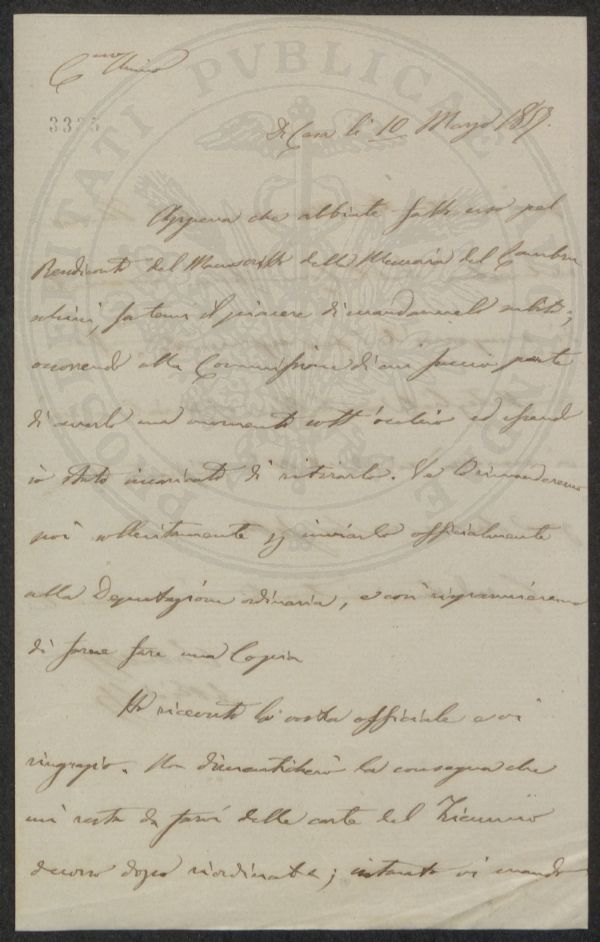 C.mo Amico
3335
Di Casa li 10 Marzo 1857.
Appena che abbiate fatto uso pel
Rendiconto del Manoscritto della
, fatemi il piacere di mandarmelo subito;
occorrendo alla Commissione di cui faccio parte
di averlo un momento sott'occhio ed essend
io stato incaricato di ritirarlo. Ve
poi sollecitamente inviarlo officialmente
alla Deputazione ordinaria, e così risparmieremo
di farne fare una Copia
Ho ricevuto la vostra officiale e vi
ringrazio. Non dimenticherò la consegna che
mi resta da farvi delle carte del Triennio
decorso dopo riordinate; intanto vi mando
PVBLICAE